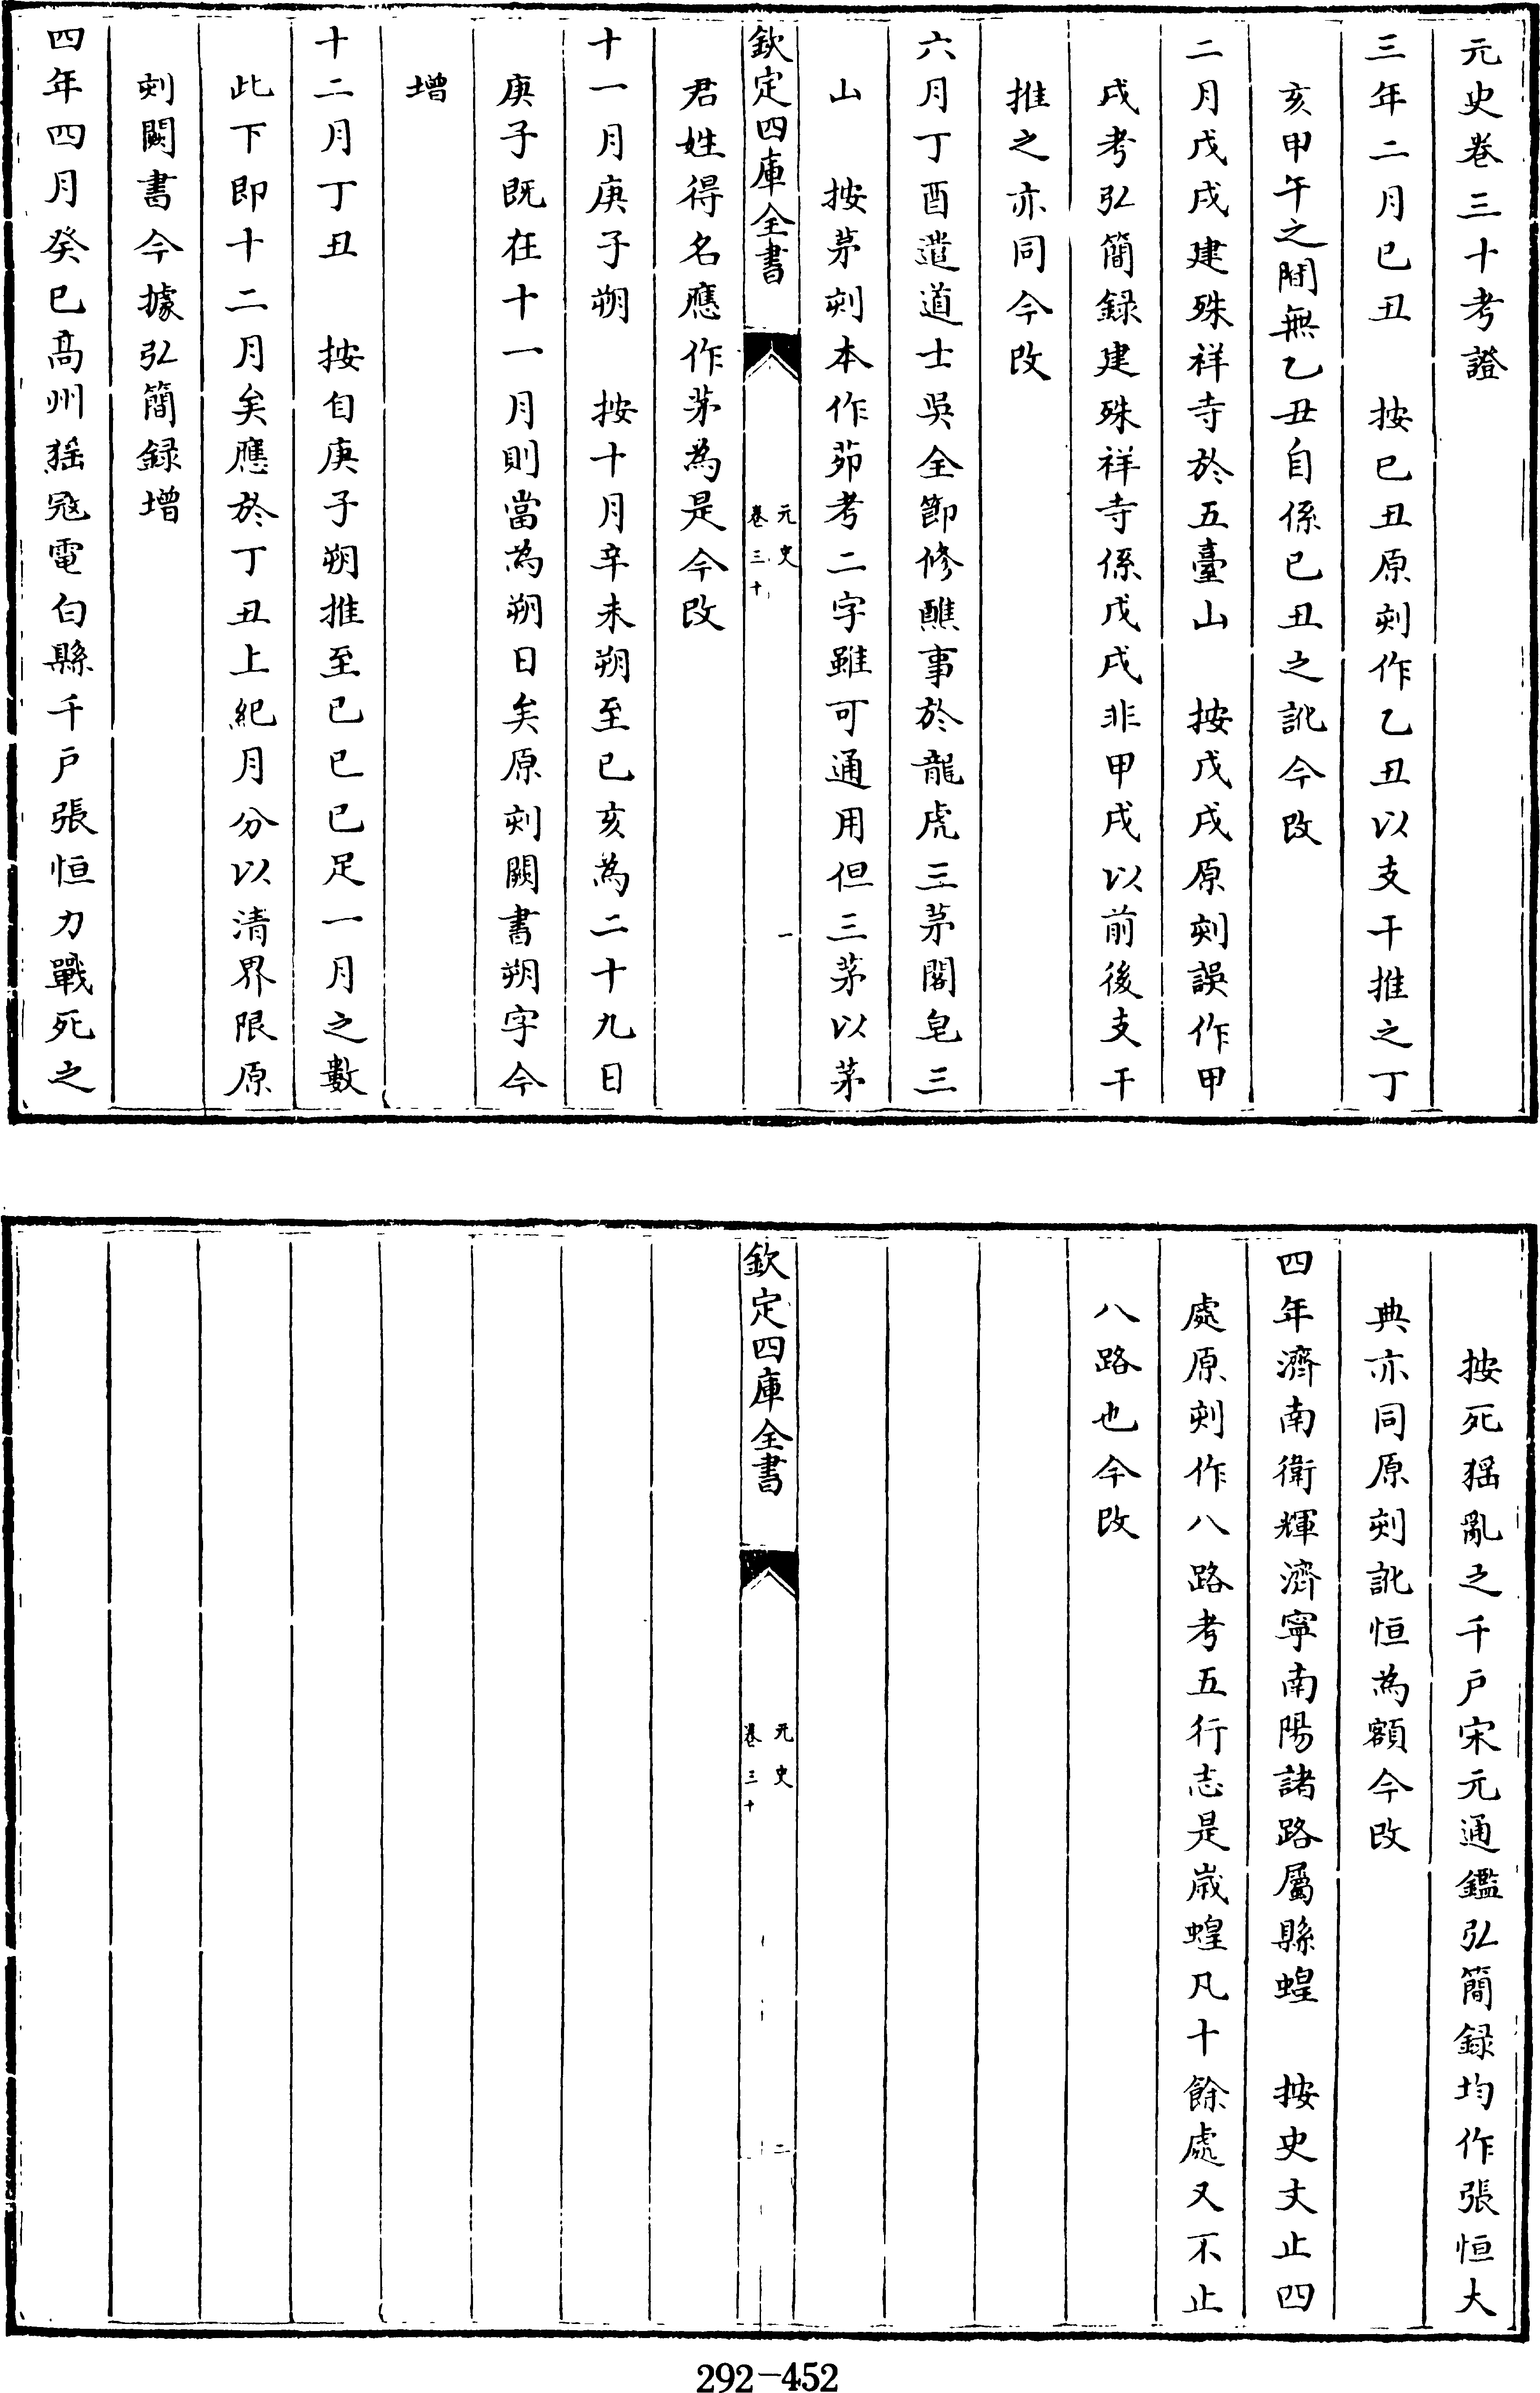 元史卷三十考證
三年二月己丑　按己丑原刻作乙丑以支干推之丁
亥甲午之間無乙丑自係己丑之訛今改
二月戊戌建殊祥寺於五臺山　按戊戌原刻誤作甲
戌考弘簡録建殊祥寺係戊戌非甲戌以前後支干
推之亦同今改
六月丁酉遣道士吳全節修醮事於龍虎三茅閣皂三
山　按茅刻本作茆考二字雖可通用但三茅以茅
欽定四庫全書
元史
卷三十
一
君姓得名應作茅為是今改
十一月庚子朔　按十月辛未朔至己亥為二十九日
庚子既在十一月則當為朔日矣原刻闕書朔字今
增
十二月丁丑　按自庚子朔推至己巳已足一月之數
此下即十二月矣應於丁丑上紀月分以清界限原
刻闕書今據弘簡録增
四年四月癸巳高州猺寇電白縣千戶張恒力戰死之
按死猺亂之千戶宋元通鑑弘簡録均作張恒大
典亦同原刻訛恒為額今改
四年濟南衛輝濟寧南陽諸路屬縣蝗　按史文止四
處原刻作八路考五行志是歲蝗凡十餘處又不止
八路也今改
欽定四庫全書
元史
卷三十
二
292-452